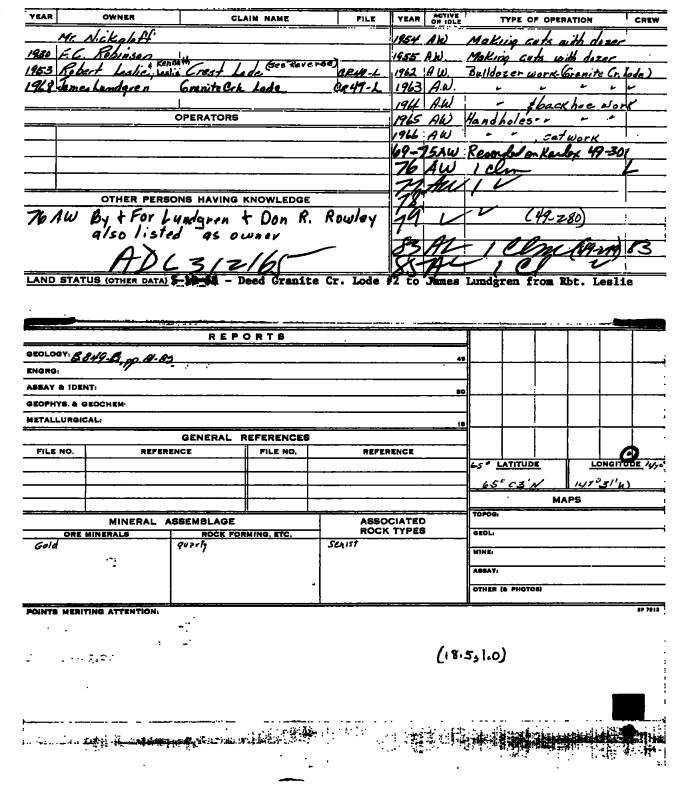 YEAR OWNER CLAIM NAME FILE YEAR ACTIVE OR IDLE TYPE OF OPERATION CREW
Mr. Nickoloff
1950 F.C. Robinson
1953 Robert Leslie & Kenneth Leslie Crest Lode (See Reverse) CR49-L
1968 James Lundgren Granite Crk Lode CR49-L
1954 AW Making cuts with dozer
1955 AW Making cuts with dozer
1962 AW Bulldozer work (Granite Cr. Lode)
1963 A.W. " " " "
1964 AW " & backhoe work
1965 AW Handholes " " "
1966 AW " " , cat work
69-75 AW Recorded on Kardex 49-301
76 AW 1 clm
77 AW 1 ✓
78
79 ✓ ✓ (49-280)
83 AL 1 Clm 83
85 AL 1 Cl
OPERATORS
OTHER PERSONS HAVING KNOWLEDGE
76 AW By + For Lundgren + Don R. Rowley
also listed as owner
ADL 312165
LAND STATUS (OTHER DATA) - Deed Granite Cr. Lode #2 to James Lundgren from Rbt. Leslie
REPORTS
GEOLOGY: B849-B, pp.
ENGRG:
ASSAY & IDENT:
GEOPHYS. & GEOCHEM:
METALLURGICAL:
GENERAL REFERENCES
FILE NO. REFERENCE FILE NO. REFERENCE
65° LATITUDE LONGITUDE 147°
65° 03' N 147° 31' W
MAPS
TOPOG:
GEOL:
MINE:
ASSAY:
OTHER (& PHOTOS)
MINERAL ASSEMBLAGE ASSOCIATED ROCK TYPES
ORE MINERALS ROCK FORMING, ETC.
Gold quartz schist
POINTS MERITING ATTENTION:
SP 7813
(18.5, 1.0)